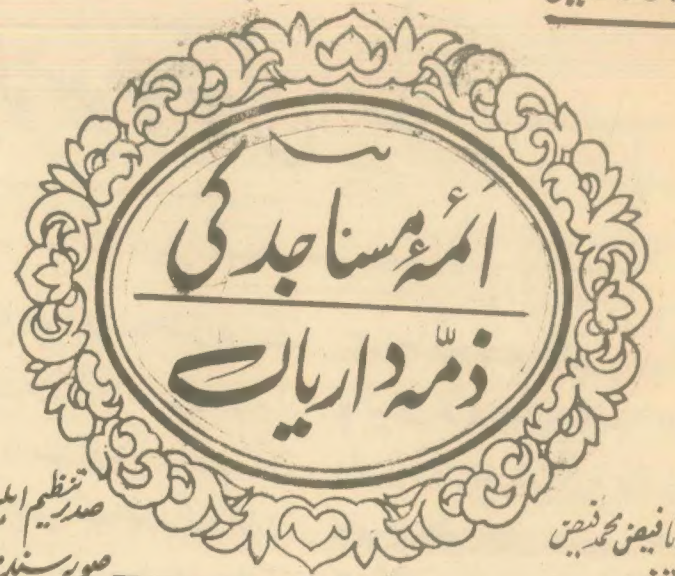 ائمۂ مساجد کی
ذمّہ داریاں
فیض محمد فیضی
صدر تنظیم
صوبہ